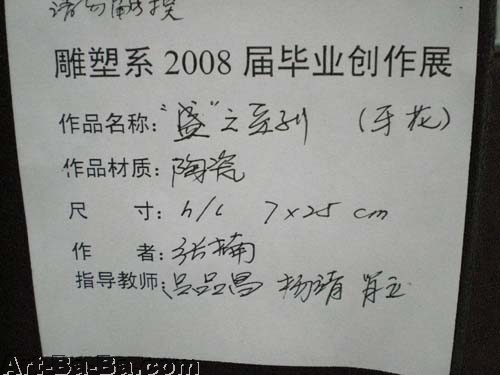 请勿触摸
雕塑系 2008 届毕业创作展
作品名称:“盛”之系列 (牙花)
作品材质:陶瓷
尺 寸: h/c 7×25 cm
作 者:张楠
指导教师:吕品昌 杨靖 肖立
Art-Ba-Ba.com